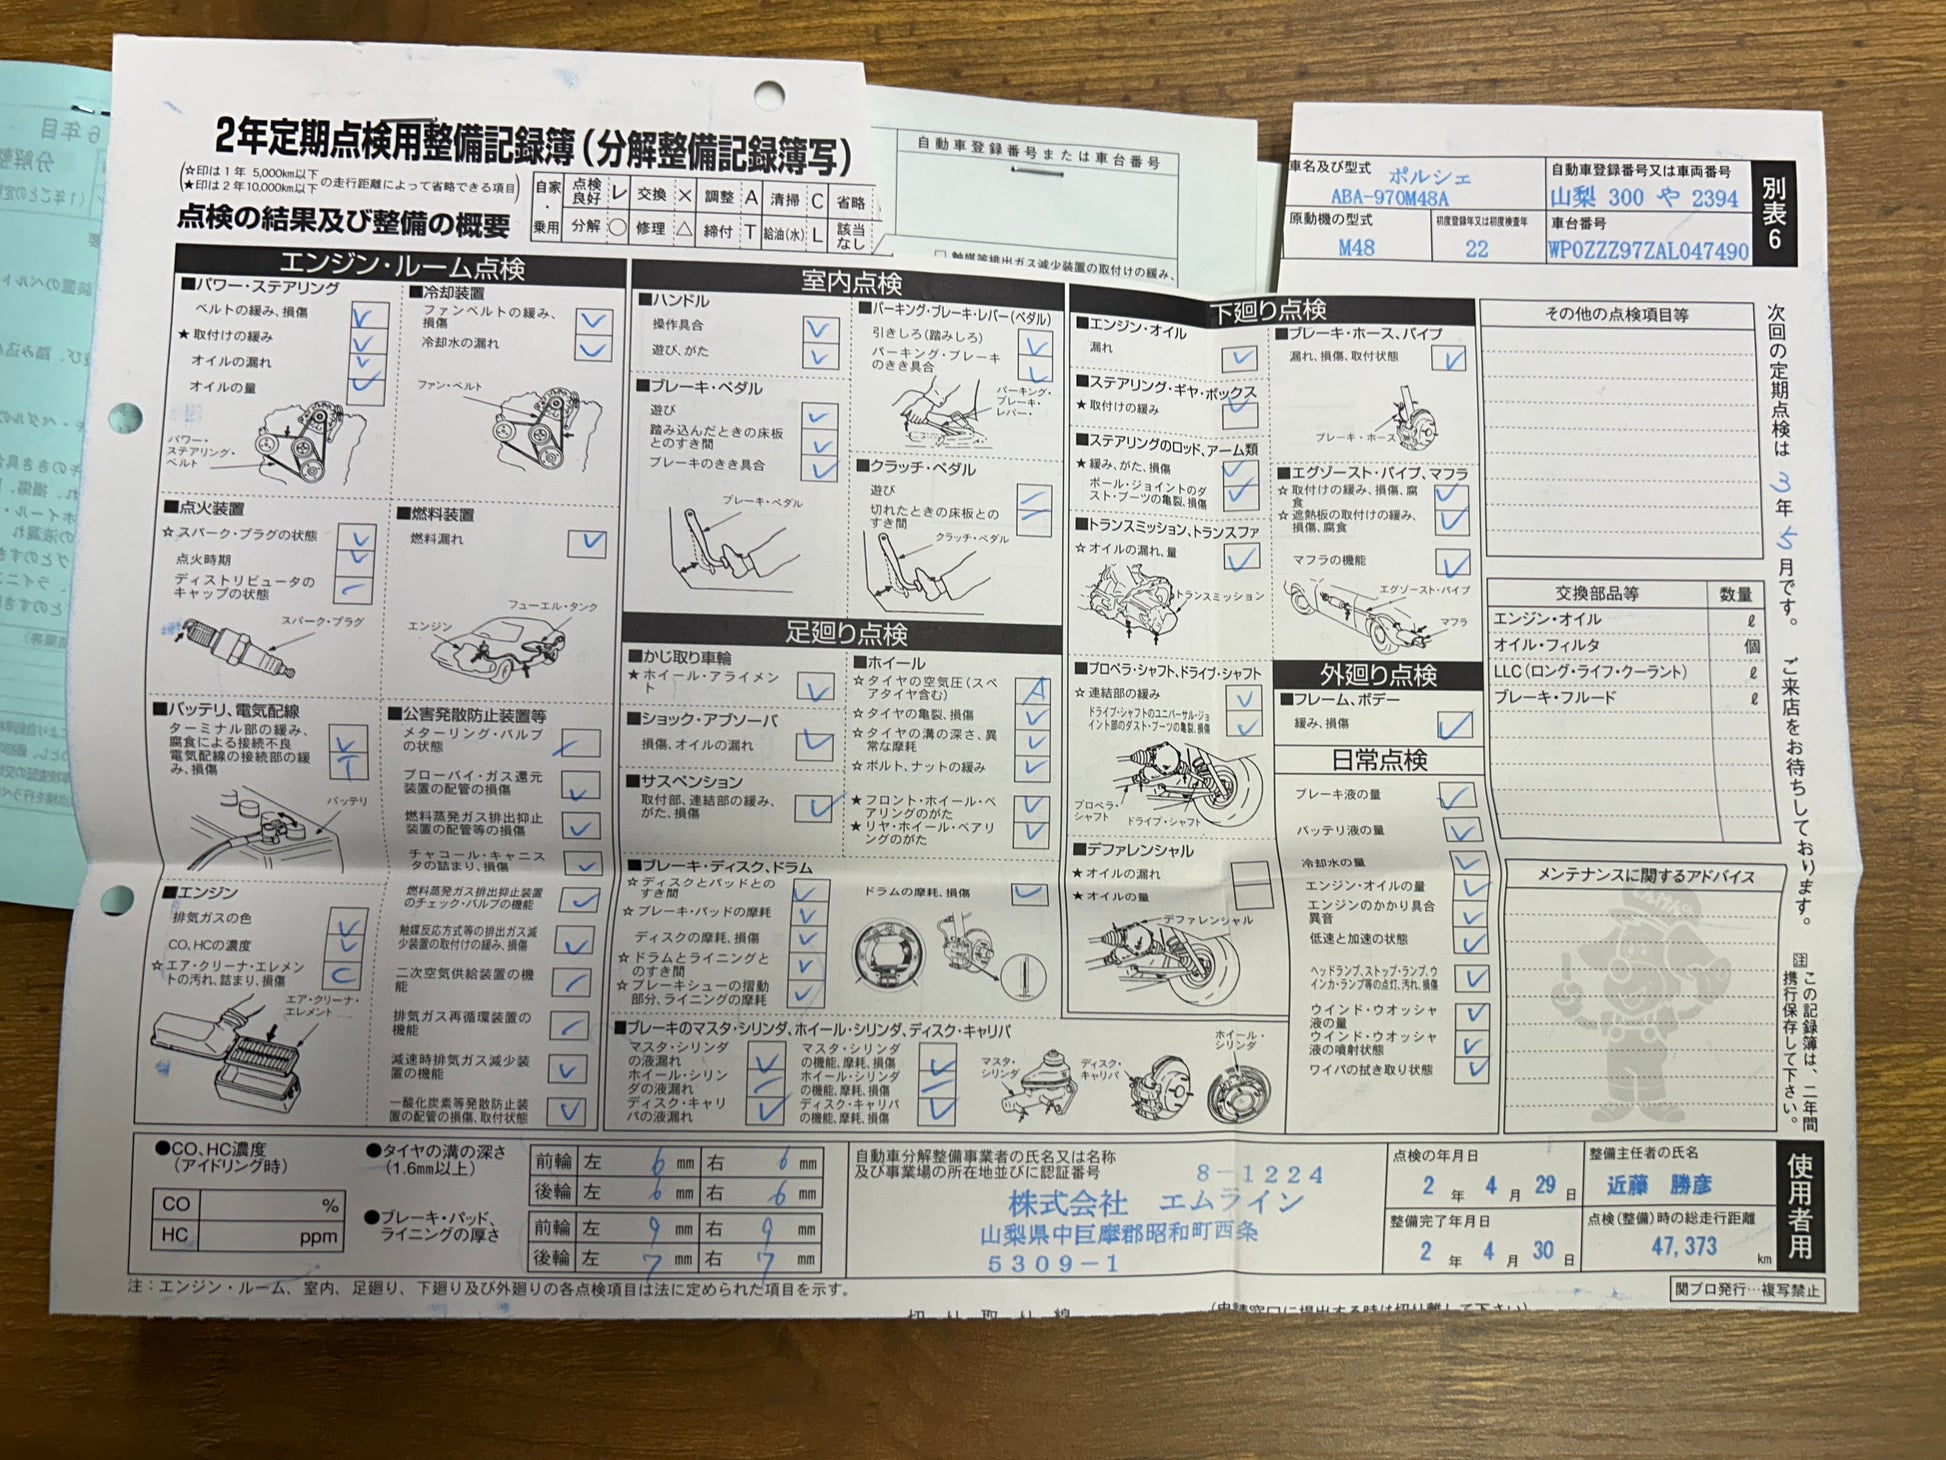 2年定期点検用整備記録簿(分解整備記録簿写)
(☆印は1年 5,000km以下
★印は2年10,000km以下 の走行距離によって省略できる項目)
点検の結果及び整備の概要
自家・乗用
点検良好 レ 交換 × 調整 A 清掃 C 省略
分解 ○ 修理 △ 締付 T 給油(水) L 該当なし /
自動車登録番号または車台番号
□ 触媒等排出ガス減少装置の取付けの緩み、
車名及び型式
ポルシェ
ABA-970M48A
自動車登録番号又は車両番号
山梨 300 や 2394
原動機の型式
M48
初度登録年又は初度検査年
22
車台番号
WP0ZZZ97ZAL047490
別表6
エンジン・ルーム点検
■パワー・ステアリング
ベルトの緩み、損傷 レ
★取付けの緩み レ
オイルの漏れ レ
オイルの量 レ
パワー・ステアリング・ベルト
■冷却装置
ファンベルトの緩み、損傷 レ
冷却水の漏れ レ
ファン・ベルト
■点火装置
☆スパーク・プラグの状態 レ
点火時期 レ
ディストリビュータのキャップの状態 /
スパーク・プラグ
■燃料装置
燃料漏れ レ
フューエル・タンク
エンジン
■バッテリ、電気配線
ターミナル部の緩み、腐食による接続不良 レ
電気配線の接続部の緩み、損傷 T
バッテリ
■公害発散防止装置等
メターリング・バルブの状態 /
ブローバイ・ガス還元装置の配管の損傷 レ
燃料蒸発ガス排出抑止装置の配管等の損傷 レ
チャコール・キャニスタの詰まり、損傷 レ
燃料蒸発ガス排出抑止装置のチェック・バルブの機能 レ
触媒反応方式等の排出ガス減少装置の取付けの緩み、損傷 レ
二次空気供給装置の機能 /
排気ガス再循環装置の機能 /
減速時排気ガス減少装置の機能 レ
一酸化炭素等発散防止装置の配管の損傷、取付状態 レ
■エンジン
排気ガスの色 レ
CO、HCの濃度 レ
☆エア・クリーナ・エレメントの汚れ、詰まり、損傷 C
エア・クリーナ・エレメント
室内点検
■ハンドル
操作具合 レ
遊び、がた レ
■ブレーキ・ペダル
遊び レ
踏み込んだときの床板とのすき間 レ
ブレーキのきき具合 レ
ブレーキ・ペダル
■パーキング・ブレーキ・レバー(ペダル)
引きしろ(踏みしろ) レ
パーキング・ブレーキのきき具合 レ
パーキング・ブレーキ・レバー
■クラッチ・ペダル
遊び /
切れたときの床板とのすき間 /
クラッチ・ペダル
足廻り点検
■かじ取り車輪
★ホイール・アライメント レ
■ショック・アブソーバ
損傷、オイルの漏れ レ
■サスペンション
取付部、連結部の緩み、がた、損傷 レ
■ホイール
☆タイヤの空気圧(スペアタイヤ含む) A
☆タイヤの亀裂、損傷 レ
☆タイヤの溝の深さ、異常な摩耗 レ
☆ボルト、ナットの緩み レ
★フロント・ホイール・ベアリングのがた レ
★リヤ・ホイール・ベアリングのがた レ
■ブレーキ・ディスク、ドラム
☆ディスクとパッドとのすき間 レ
☆ブレーキ・パッドの摩耗 レ
ディスクの摩耗、損傷 レ
☆ドラムとライニングとのすき間 レ
☆ブレーキシューの摺動部分、ライニングの摩耗 レ
ドラムの摩耗、損傷 レ
■ブレーキのマスタ・シリンダ、ホイール・シリンダ、ディスク・キャリパ
マスタ・シリンダの液漏れ レ
ホイール・シリンダの液漏れ /
ディスク・キャリパの液漏れ レ
マスタ・シリンダの機能、摩耗、損傷 レ
ホイール・シリンダの機能、摩耗、損傷 /
ディスク・キャリパの機能、摩耗、損傷 レ
マスタ・シリンダ
ディスク・キャリパ
ホイール・シリンダ
下廻り点検
■エンジン・オイル
漏れ レ
■ステアリング・ギヤ・ボックス
★取付けの緩み レ
■ステアリングのロッド、アーム類
★緩み、がた、損傷 レ
ボール・ジョイントのダスト・ブーツの亀裂、損傷 レ
■トランスミッション、トランスファ
☆オイルの漏れ、量 レ
トランスミッション
■プロペラ・シャフト、ドライブ・シャフト
☆連結部の緩み レ
ドライブ・シャフトのユニバーサル・ジョイント部のダスト・ブーツの亀裂、損傷 レ
プロペラ・シャフト
ドライブ・シャフト
■デファレンシャル
★オイルの漏れ
★オイルの量
デファレンシャル
■ブレーキ・ホース、パイプ
漏れ、損傷、取付状態 レ
ブレーキ・ホース
■エグゾースト・パイプ、マフラ
☆取付けの緩み、損傷、腐食 レ
☆遮熱板の取付けの緩み、損傷、腐食 レ
マフラの機能 レ
エグゾースト・パイプ
マフラ
外廻り点検
■フレーム、ボデー
緩み、損傷 レ
日常点検
ブレーキ液の量 レ
バッテリ液の量 レ
冷却水の量 レ
エンジン・オイルの量 レ
エンジンのかかり具合異音 レ
低速と加速の状態 レ
ヘッドランプ、ストップ・ランプ、ウインカ・ランプ等の点灯、汚れ、損傷 レ
ウインド・ウオッシャ液の量 レ
ウインド・ウオッシャ液の噴射状態 レ
ワイパの拭き取り状態 レ
その他の点検項目等
交換部品等 数量
エンジン・オイル ℓ
オイル・フィルタ 個
LLC(ロング・ライフ・クーラント) ℓ
ブレーキ・フルード ℓ
メンテナンスに関するアドバイス
次回の定期点検は3年5月です。 ご来店をお待ちしております。
注 この記録簿は、二年間携行保存して下さい。
●CO、HC濃度
(アイドリング時)
CO %
HC ppm
●タイヤの溝の深さ
(1.6mm以上)
前輪 左 6 mm 右 6 mm
後輪 左 6 mm 右 6 mm
●ブレーキ・パッド、ライニングの厚さ
前輪 左 9 mm 右 9 mm
後輪 左 7 mm 右 7 mm
自動車分解整備事業者の氏名又は名称
及び事業場の所在地並びに認証番号
8-1224
株式会社 エムライン
山梨県中巨摩郡昭和町西条
5309-1
点検の年月日
2年 4月 29日
整備完了年月日
2年 4月 30日
整備主任者の氏名
近藤 勝彦
点検(整備)時の総走行距離
47,373 km
使用者用
注:エンジン・ルーム、室内、足廻り、下廻り及び外廻りの各点検項目は法に定められた項目を示す。
関プロ発行…複写禁止
切り取り線
(申請窓口に提出する時は切り離して下さい)